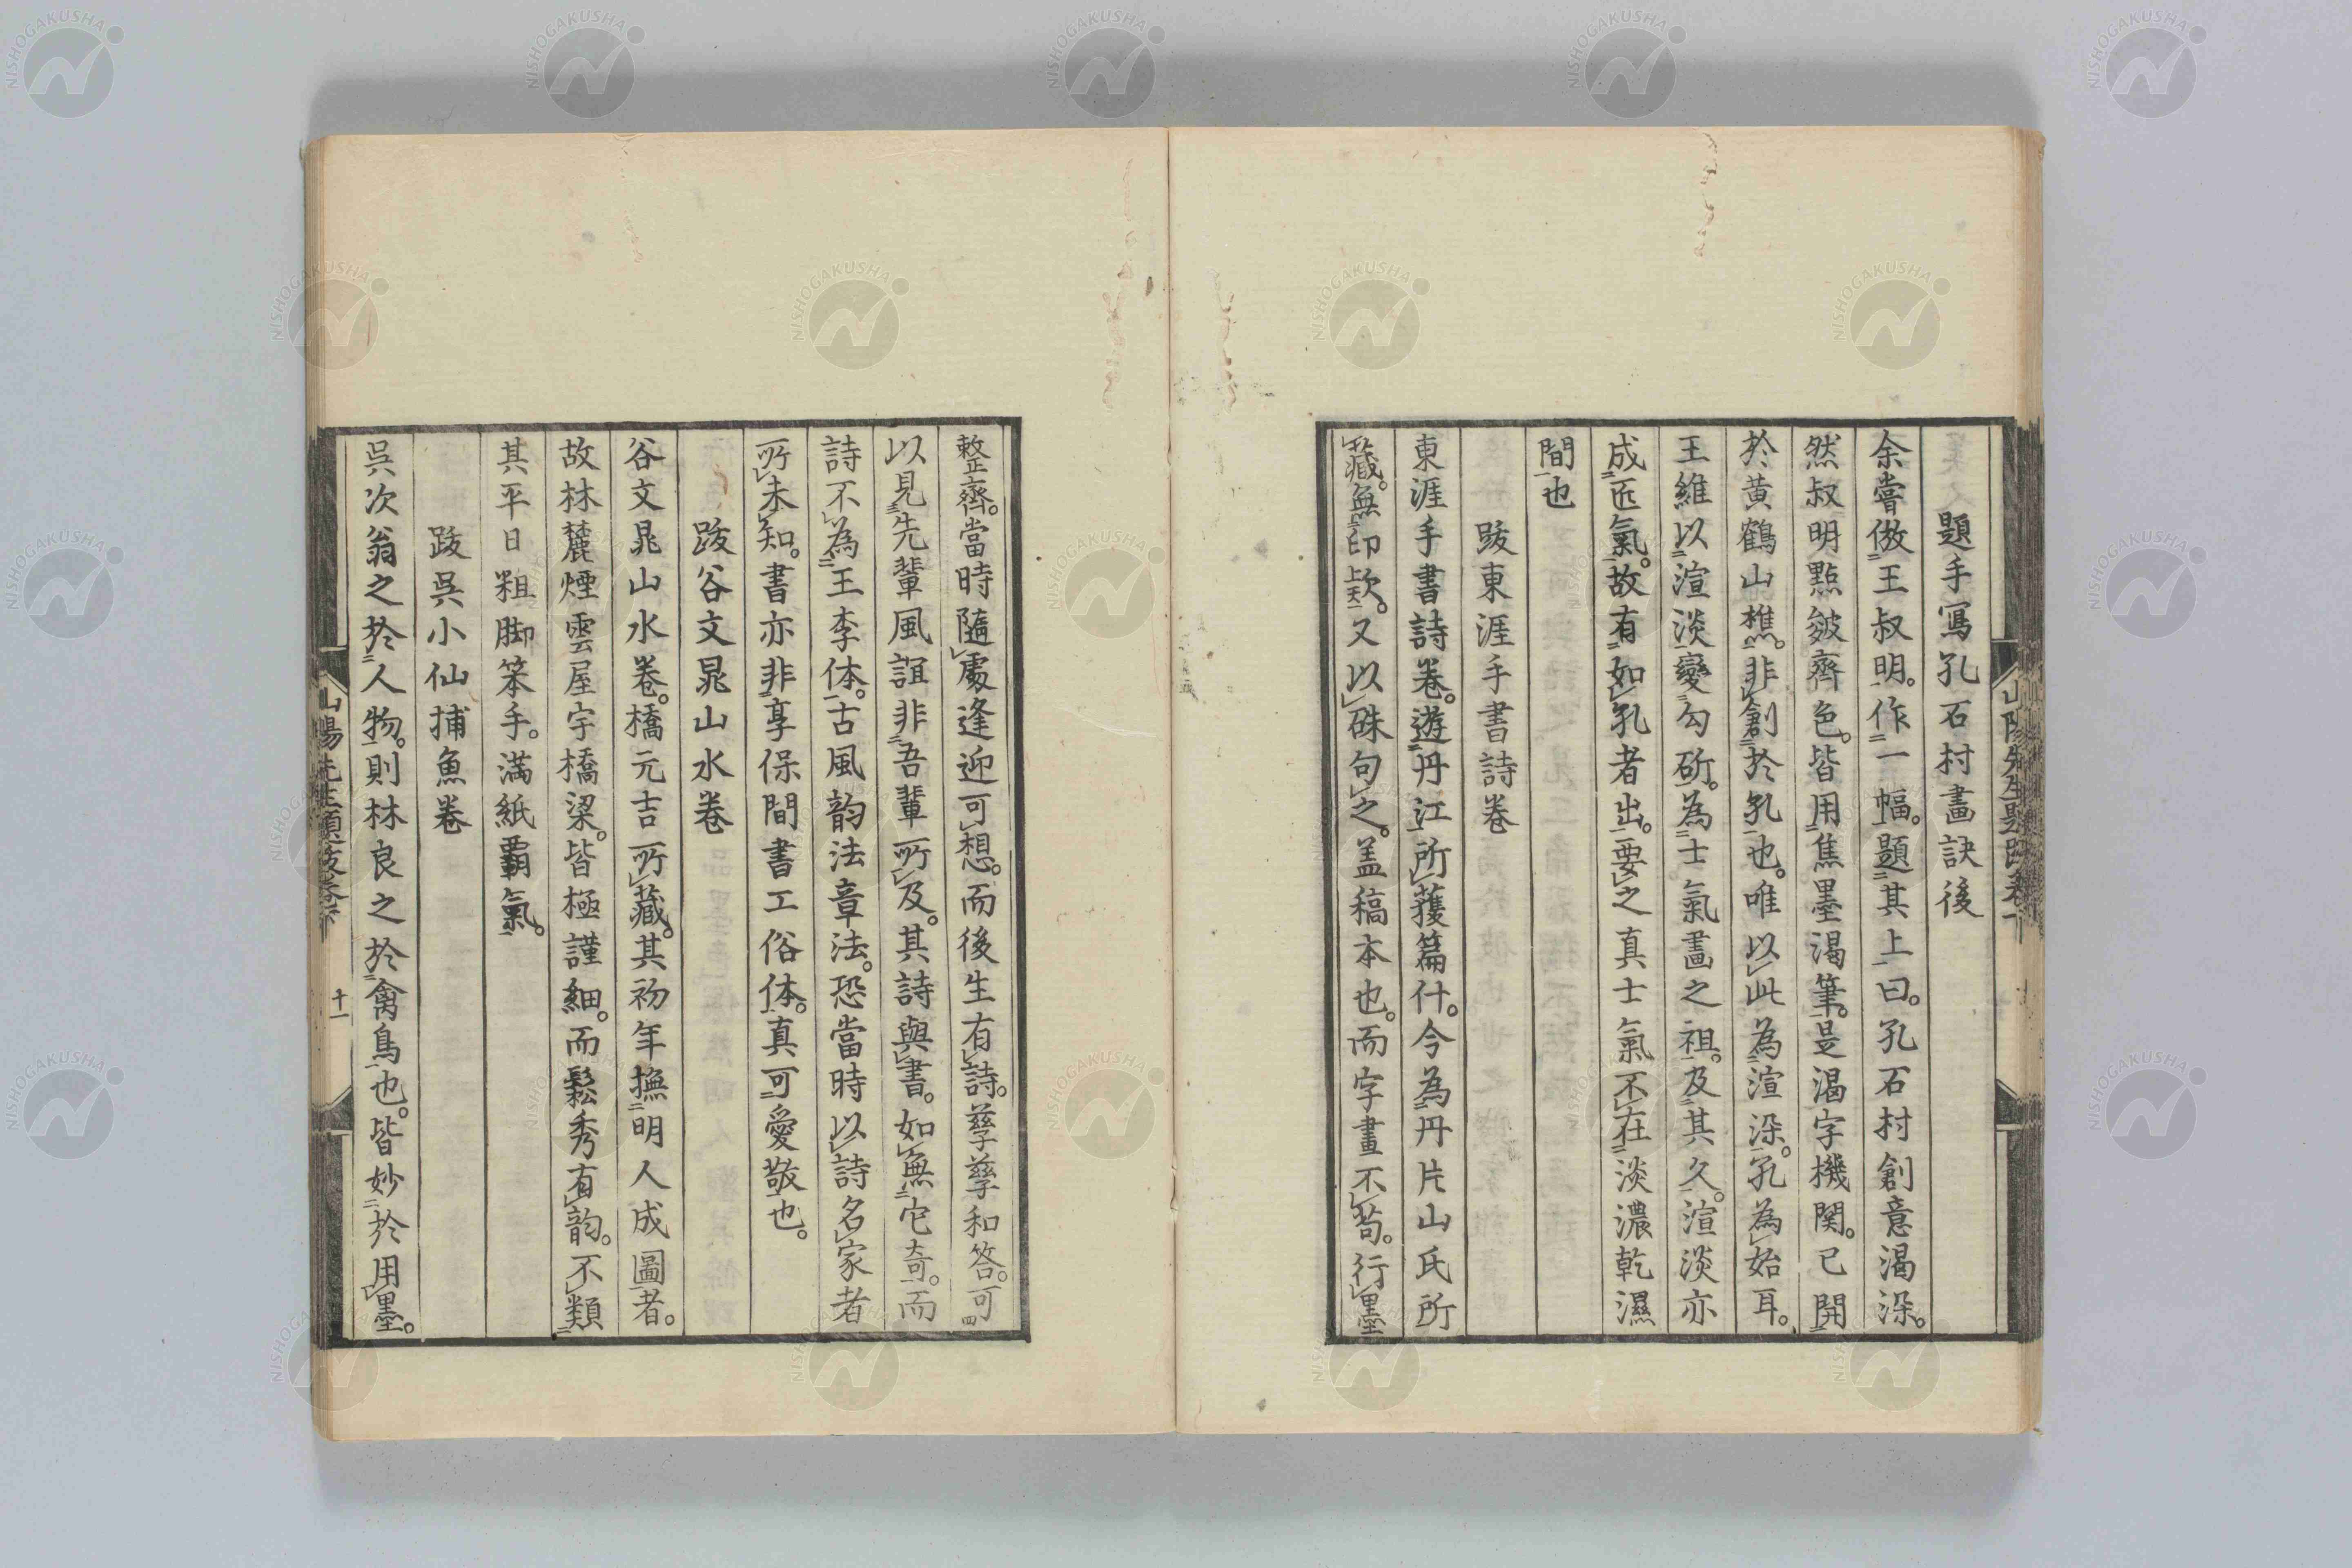 題手寫孔石村畫訣後
余嘗倣王叔明。作一幅。題其上曰。孔石村創意渴染。
然叔明點皴齊色。皆用焦墨渴筆。是渴字機関。已開
於黄鶴山樵。非創於孔也。唯以此為渲染。孔為始耳。
王維以渲淡變勾斫。為士氣畫之祖。及其久。渲淡亦
成匠氣。故有如孔者出。要之真士氣不在淡濃乾濕
間也
跋東涯手書詩卷
東涯手書詩卷。遊丹江所蒦篇什。今為丹片山氏所
藏。無印欵。又以硃句之。盖稿本也。而字畫不苟。行墨
整齊。當時隨處逢迎可想。而後生有詩。孳孳和答。可
以見先輩風誼非吾輩所及。其詩與書。如無它奇。而
詩不為王李体。古風韵法章法。恐當時以詩名家者
所未知。書亦非享保間書工俗体。真可愛敬也。
跋谷文晁山水卷
谷文晁山水卷。橋元吉所藏。其初年撫明人成圖者。
故林麓煙雲屋宇橋梁。皆極謹細。而鬆秀有韵。不類
其平日粗脚笨手。満紙覇氣。
跋呉小仙捕魚卷
呉次翁之於人物。則林良之於禽鳥也。皆妙於用墨。
山陽先生題跋卷下
十一
NISHOGAKUSHA